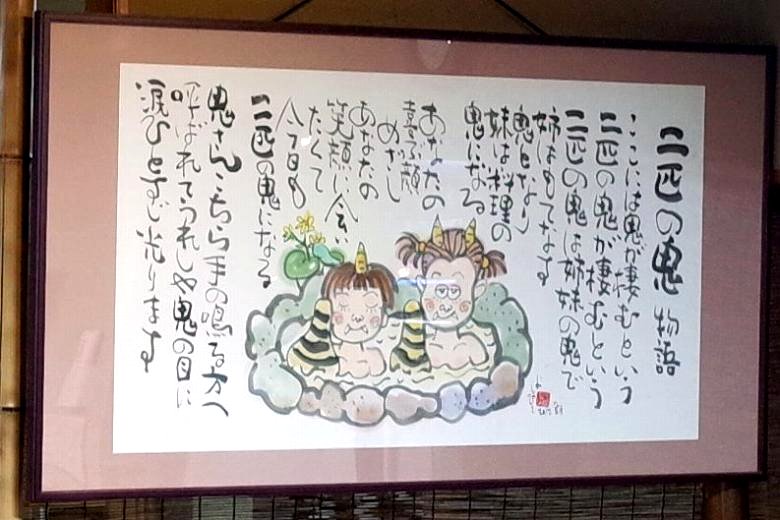 二匹の鬼 物語
ここには鬼が棲むという
二匹の鬼が棲むという
二匹の鬼は姉妹の鬼で
姉はもてなす
鬼となり
妹は料理の
鬼になる
あなたの
喜ぶ顔
めざし
あなたの
笑顔に会い
たくて
今日も
二匹の鬼になる
鬼さんこちら手の鳴る方へ
呼ばれてうれしや鬼の目に
涙ひとすじ光ります